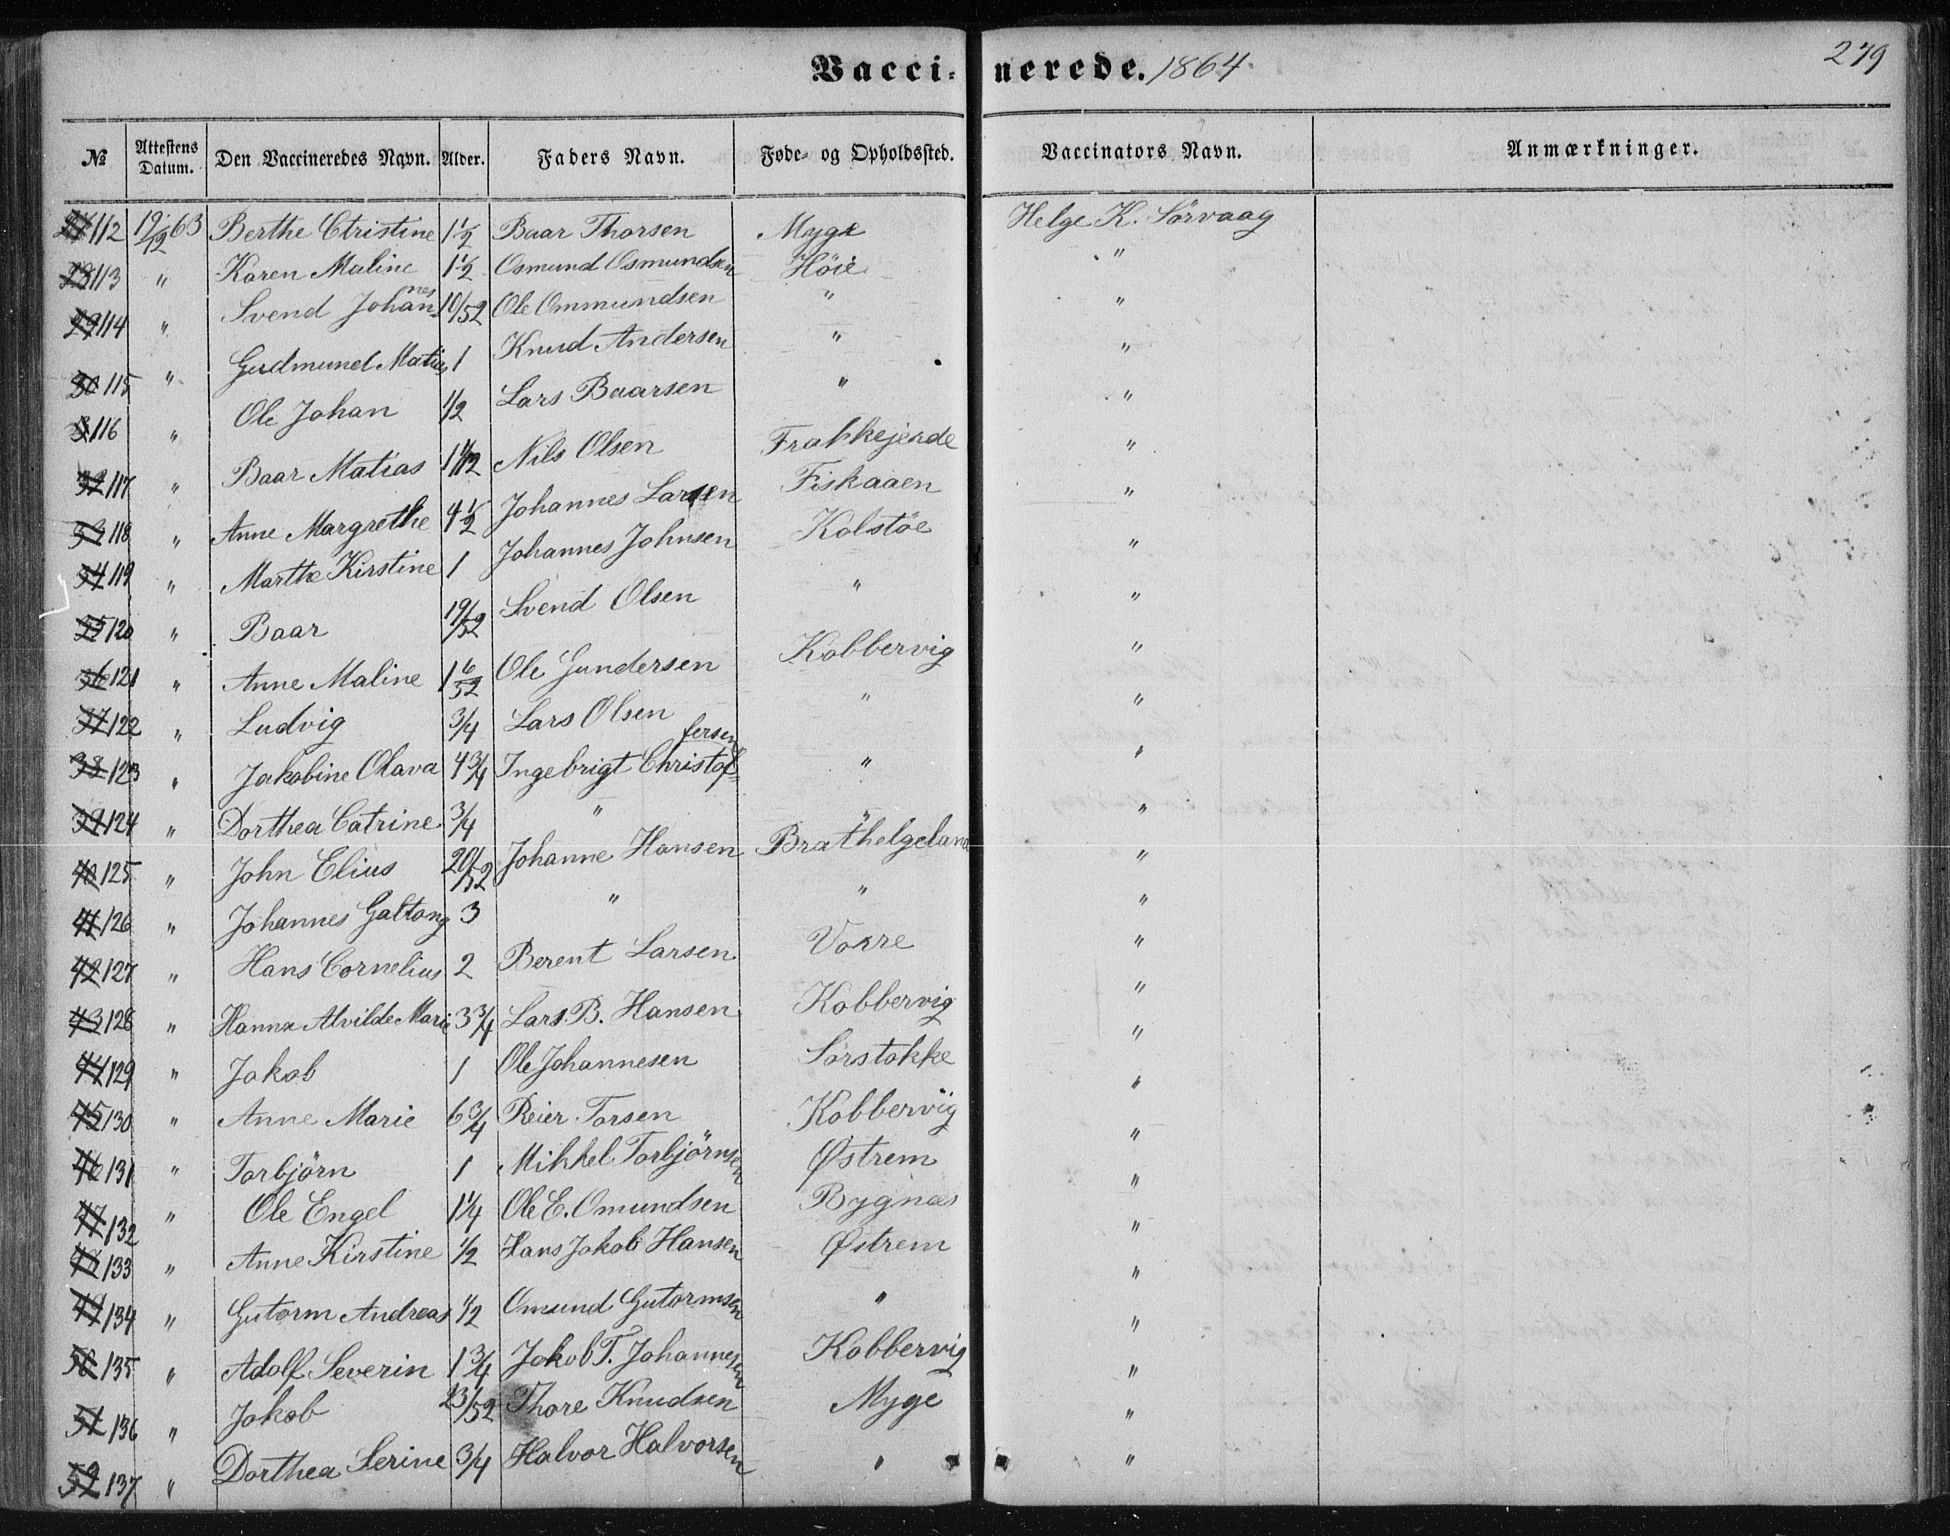 Vaccinerede. 1864 279
№ Attestens Datum. Den Vaccineredes Navn. Alder. Faders Navn. Føde- og Opholdssted. Vaccinators Navn. Anmærkninger.
112 19/12 63 Berthe Christine 1 1/2 Baar Thorsen Myge Helge K. Sörvaag
28 113 " Karen Maline 1 1/2 Osmund Osmundsen Höie "
29 114 " Svend Johannes 10/52 Ole Ommundsen " "
30 115 " Gudmund Matias 1 Knud Andersen " "
116 " Ole Johan 1/2 Lars Baarsen " "
32 117 " Baar Matias 1 Nils Olsen "
33 118 " Anne Margrethe 4 1/2 Johannes Larsen Fiskaaen "
34 119 " Marthe Kirstine 1 Johannes Johnsen Kolstöe "
35 120 " Baar 19/52 Svend Olsen " "
36 121 " Anne Maline 1 6/52 Ole Gundersen Kobbervig "
37 122 " Ludvig 3/4 Lars Olsen " "
38 123 " Jakobine Olava 4 3/4 Ingebrigt Christoffersen " "
39 124 " Dorthea Catrine 3/4 " " "
40 125 " John Elius 20/52 Johanne Hansen Brathelgeland "
41 126 " Johannes Galtong 3 " " "
42 127 " Hans Cornelius 2 Berent Larsen Vorre "
43 128 " Hanna Alvilde Marie 3 3/4 Lars B. Hansen Kobbervig "
44 129 " Jakob 1 Ole Johannesen Sörstokke "
45 130 " Anne Marie 6 3/4 Reier Torsen Kobbervig "
46 131 " Torbjörn 1 Mikkel Torbjörnsen Østrem "
47 132 " Ole Engel 1 1/4 Ole E. Omundsen Bygnæs "
48 133 " Anne Kirstine 1/2 Hans Jakob Hansen Østrem "
49 134 " Gutorm Andreas 1/2 Omund Gutormsen " "
50 135 " Adolf Severin 1 3/4 Jakob T. Johannesen Kobbervig "
51 136 " Jakob 23/52 Thore Knudsen Myge "
52 137 " Dorthea Serine 3/4 Halvor Halvorsen " "